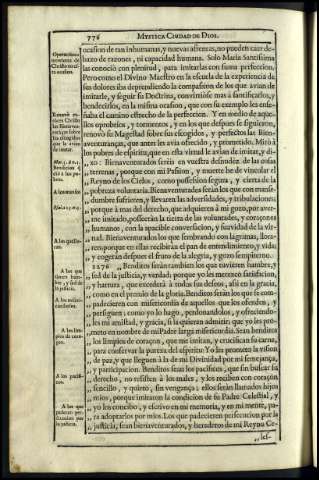 776
MYSTICA CIUDAD DE DIOS.
ocasion de tan inhumanas, y nuevas afrentas, no pueden caer debaxo
de razones, ni capacidad humana. Solo Maria Santissima
las conoció con plenitud, para imitarlas con suma perfeccion.
Pero como el Divino Maestro en la escuela de la experiencia de
sus dolores iba deprendiendo la compasion de los que avian de
imitarle, y seguir su Doctrina, convirtióse mas á santificarlos, y
bendecirlos, en la misma ocasion, que con su exemplo les enseñaba
el camino estrecho de la perfeccion. Y en medio de aquellos
oprobrios, y tormentos, y en los que despues se siguieron,
renovó su Magestad sobre sus escogidos, y perfectos las Bienaventuranças,
que antes les avia ofrecido, y prometido. Miró á
los pobres de espiritu, que en esta virtud le avian de imitar, y dixo:
„ Bienaventurados seréis en vuestra desnudéz de las cosas
„ terrenas, porque con mi Passion, y muerte he de vincular el
„ Reyno de los Cielos, como possession segura, y cierta de la
„ pobreza voluntaria. Bienaventurados serán los que con mansedumbre
sufrieren, y llevaren las adversidades, y tribulaciones;
„ porque á mas del derecho, que adquieren á mi gozo, por averme
imitado, posseerán la tierra de las voluntades, y coraçones
„ humanos, con la apacible conversacion, y suavidad de la virtud.
Bienaventurados los que sembrando con lagrimas, lloraren;
porque en ellas recibirán el pan de entendimiento, y vida,
„ y cogerán despues el fruto de la alegria, y gozo sempiterno.
1276 „ Benditos serán tambien los que tuvieren hambre, y
„ sed de la justicia, y verdad; porque yo les mereceré satisfacion,
„ y hartura, que excederá á todos sus deseos, assi en la gracia,
„ como en el premio de la gloria. Benditos serán los que se compadecieren
con misericordia de aquellos que los ofenden, y
„ persiguen; como yo lo hago, perdonandolos, y ofreciendoles
mi amistad, y gracia, si la quieren admitir: que yo les prometo
en nombre de mi Padre larga misericordia. Sean benditos
„ los limpios de coraçon, que me imitan, y crucifican su carne,
„ para conservar la pureza del espiritu: Yo les prometo la vision
„ de paz, y que lleguen á la de mi Divinidad por mi semejança,
„ y participacion. Benditos sean los pacificos, que sin buscar su
„ derecho, no resisten á los males, y los reciben con coraçon
„ sencillo, y quieto, sin vengança; ellos serán llamados hijos
„ mios, porque imitaron la condicion de su Padre Celestial, y
„ yo los concibo, y escrivo en mi memoria, y en mi mente, para
adoptarlos por mios. Los que padecieren persecucion por la
„ justicia, sean bienaventurados, y herederos de mi Reyno Ce-
„ les-
A los mansos
A los que lloran.
A los que tienen hambre, y sed de la justicia.
A los misericordiosos.
A los limpios de coraçon.
A los pacificos.
A los que padecen persecucion por la justicia.